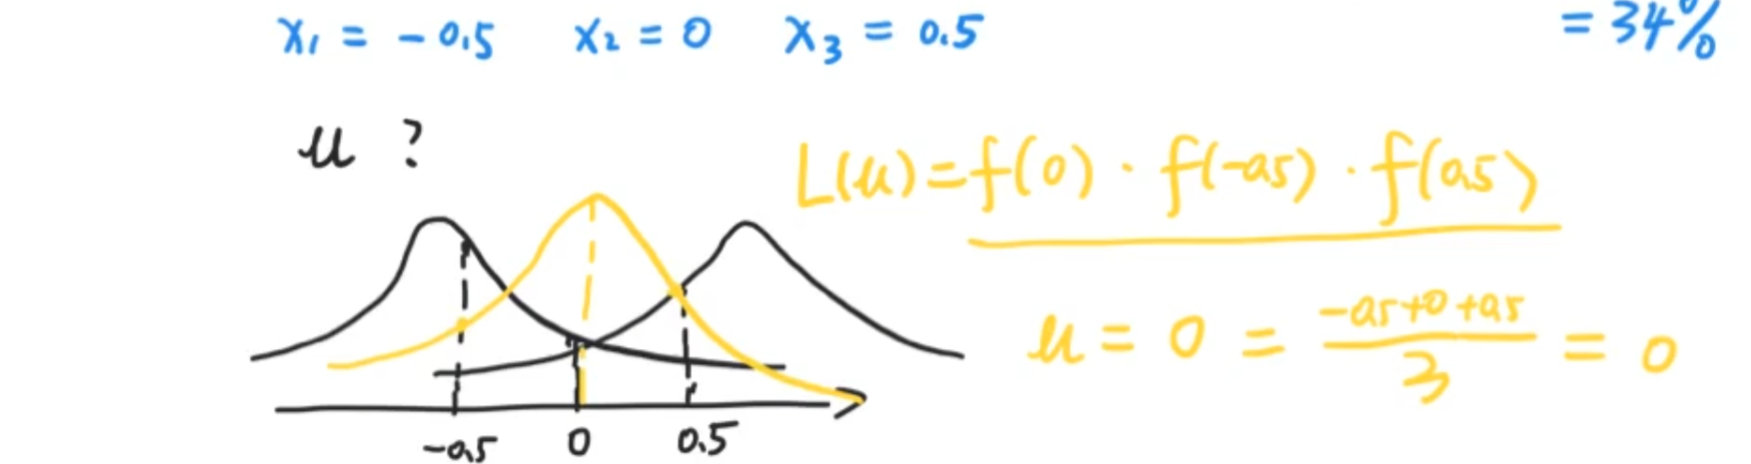 x₁ = -0.5 x₂ = 0 x₃ = 0.5
= 34%
u ?
L(u) = f(0) · f(-0.5) · f(0.5)
u = 0 = (-0.5+0+0.5)/3 = 0
-0.5 0 0.5